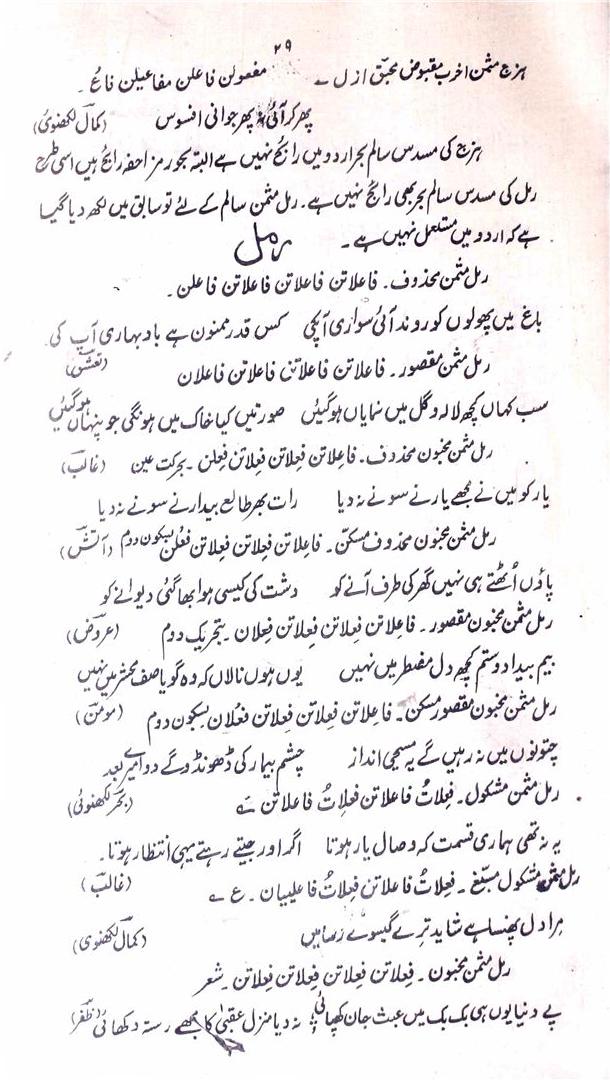 ۲۹
ہزج مثمن اخرب مقبوض محبق ازل ؎ مفعولن فاعلن مفاعیلن فاع ۔
پھر کر آئی پھر جوانی افسوس (کمال لکھنوی)
ہزج کی مسدس سالم بحر اردو میں رائج نہیں ہے البتہ بحور مزاحفہ رائج ہیں اسی طرح
رمل کی مسدس سالم بحر بھی رائج نہیں ہے۔ رمل مثمن سالم کے لئے تو سابق میں لکھ دیا گیا
ہے کہ اردو میں مستعمل نہیں ہے ۔
رمل
رمل مثمن محذوف ۔ فاعلاتن فاعلاتن فاعلاتن فاعلن ۔
باغ میں پھولوں کو روند آئی سواری آپکی کس قدر ممنون ہے باد بہاری آپ کی
رمل مثمن مقصور ۔ فاعلاتن فاعلاتن فاعلاتن فاعلان (تعشق)
سب کہاں کچھ لالہ و گل میں نمایاں ہو گئیں صورتیں کیا خاک میں ہونگی جو پنہاں ہو گئیں
رمل مثمن مخبون محذوف ۔ فاعلاتن فعلاتن فعلاتن فعلن ۔ بحرکت عین (غالب)
یار کو میں نے مجھے یار نے سونے نہ دیا رات بھر طالع بیدار نے سونے نہ دیا
رمل مثمن مخبون محذوف مسکّن ۔ فاعلاتن فعلاتن فعلاتن فعْلن بسکون دوم (آتش)
پاؤں اُٹھتے ہی نہیں گھر کی طرف آنے کو دشت کی کیسی ہوا بھا گئی دیوانے کو
رمل مثمن مخبون مقصور ۔ فاعلاتن فعلاتن فعلاتن فعلان ۔ بتحریک دوم (عروض)
بیم بیداد و ستم کچھ دل مضطر میں نہیں یوں ہوں نالاں کہ وہ گویا صف محشر میں نہیں
رمل مثمن مخبون مقصور مسکن ۔ فاعلاتن فعلاتن فعلاتن فعْلان بسکون دوم (مومن)
چتونوں میں نہ رہیں گے یہ مسیحی انداز چشم بیمار کی ڈھونڈو گے دوا میرے بعد
رمل مثمن مشکول ۔ فعلاتُ فاعلاتن فعلاتُ فاعلاتن ؎ (بحر لکھنوی)
یہ نہ تھی ہماری قسمت کہ وصال یار ہوتا اگر اور جیتے رہتے یہی انتظار ہوتا ۔
رمل مثمن مشکول مسبّغ ۔ فعلاتُ فاعلاتن فعلاتُ فاعلییان ۔ ع ؎ (غالب)
مرا دل پھنسا ہے شاید ترے گیسوے رسا میں (کمال لکھنوی)
رمل مثمن مخبون ۔ فعلاتن فعلاتن فعلاتن فعلاتن ۔ شعر
پے دنیا یوں ہی بک بک میں عبث جان کھپائی نہ دیا منزل عقبیٰ کا مجھے رستہ دکھائی (ظفر)